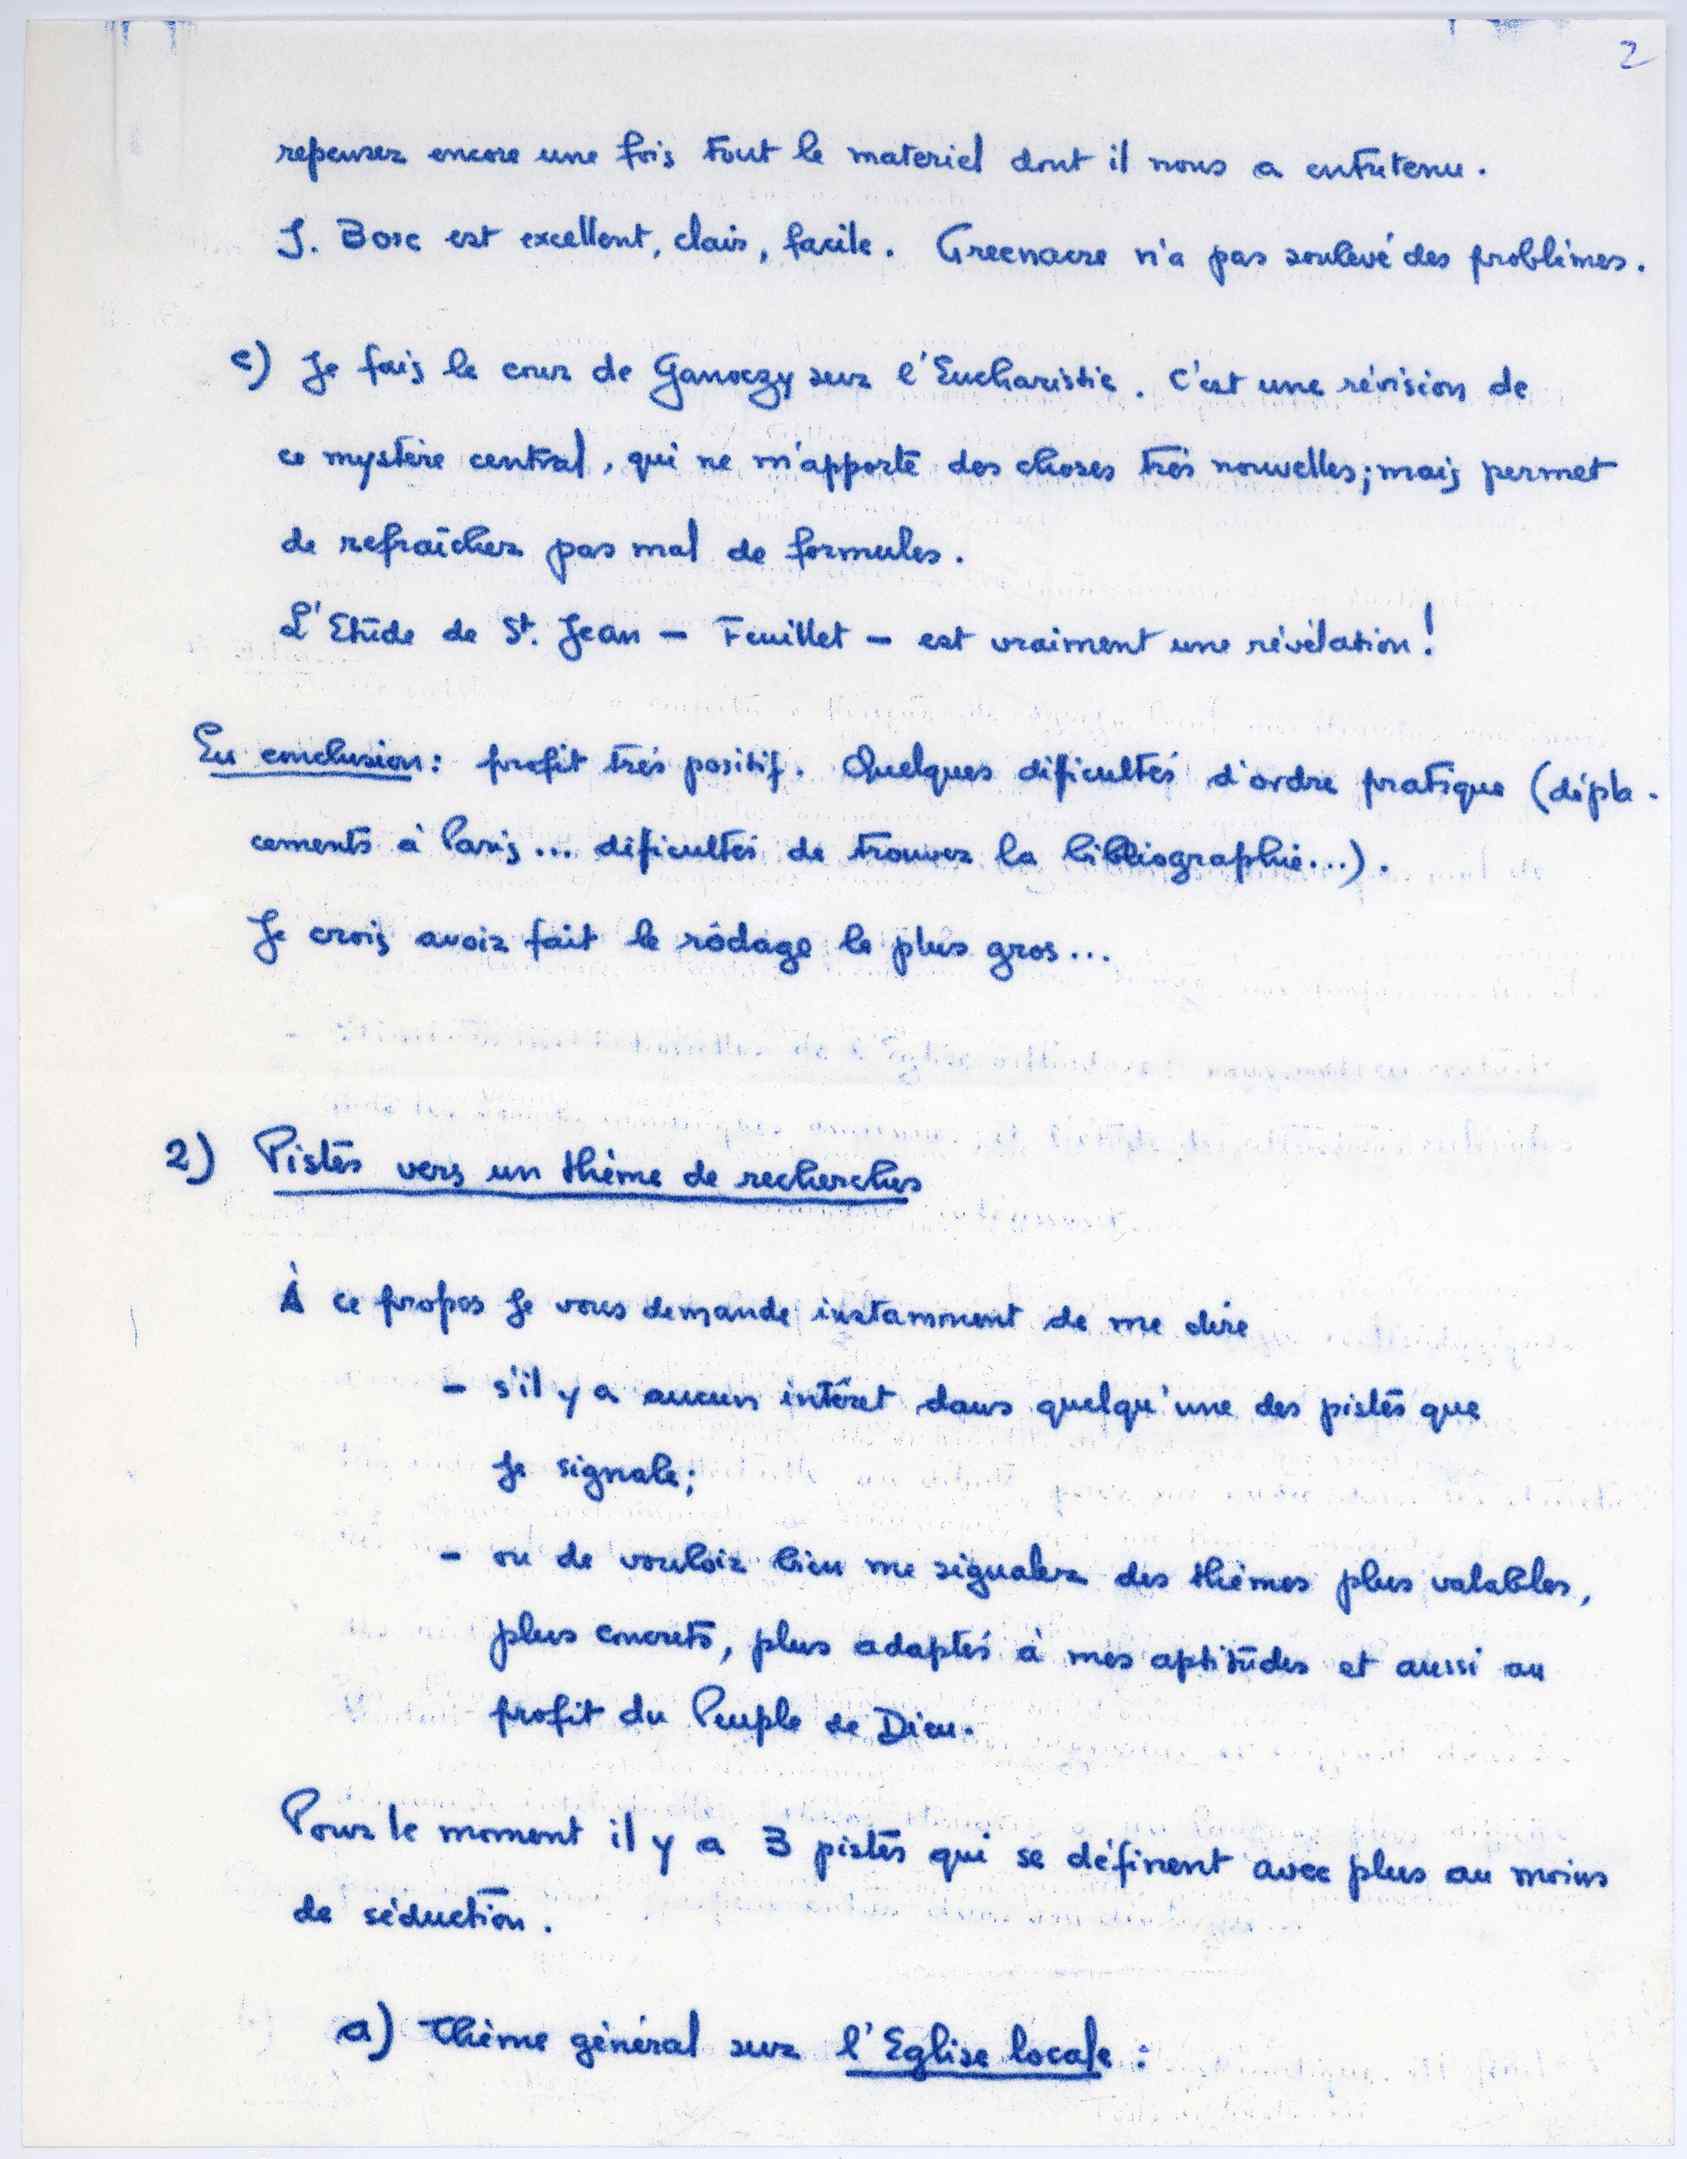 2
repenser encore une fois tout le materiel dont il nous a entretenu.
J. Bosc est excellent, clair, facile. Greenacre n'a pas soulevé des problèmes.
c) Je fais le cour de Ganoczy sur l'Eucharistie. C'est une révision de
ce mystère central, qui ne m'apporte des choses très nouvelles; mais permet
de refraîcher pas mal de formules.
L'Etude de St. Jean – Feuillet – est vraiment une révélation!
En conclusion: profit très positif. Quelques dificultés d'ordre pratique (dépla-
cements à Paris... dificultés de trouver la bibliographie...).
Je crois avoir fait le rodage le plus gros...
2) Pistes vers un thème de recherches
À ce propos je vous demande instamment de me dire
– s'il y a aucun intêret dans quelqu'une des pistes que
je signale;
– ou de vouloir bien me signaler des thèmes plus valables,
plus concrets, plus adaptés à mes aptitudes et aussi au
profit du Peuple de Dieu.
Pour le moment il y a 3 pistes qui se définent avec plus au moins
de séduction.
a) thème général sur l'Eglise locale: